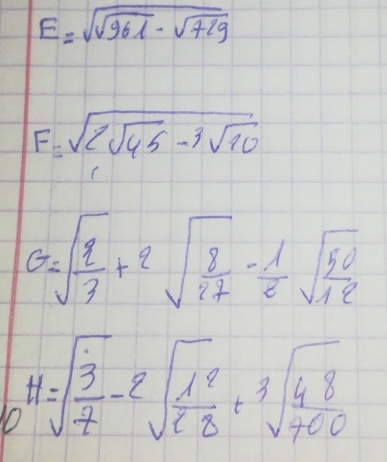 E = √(√961 - √729)
F = √(2√45 - 3√20)
G = √(2/3) + 2 √(8/27) - 1/2 √(50/12)
H = √(3/7) - 2 √(12/28) + 3 √(48/700)